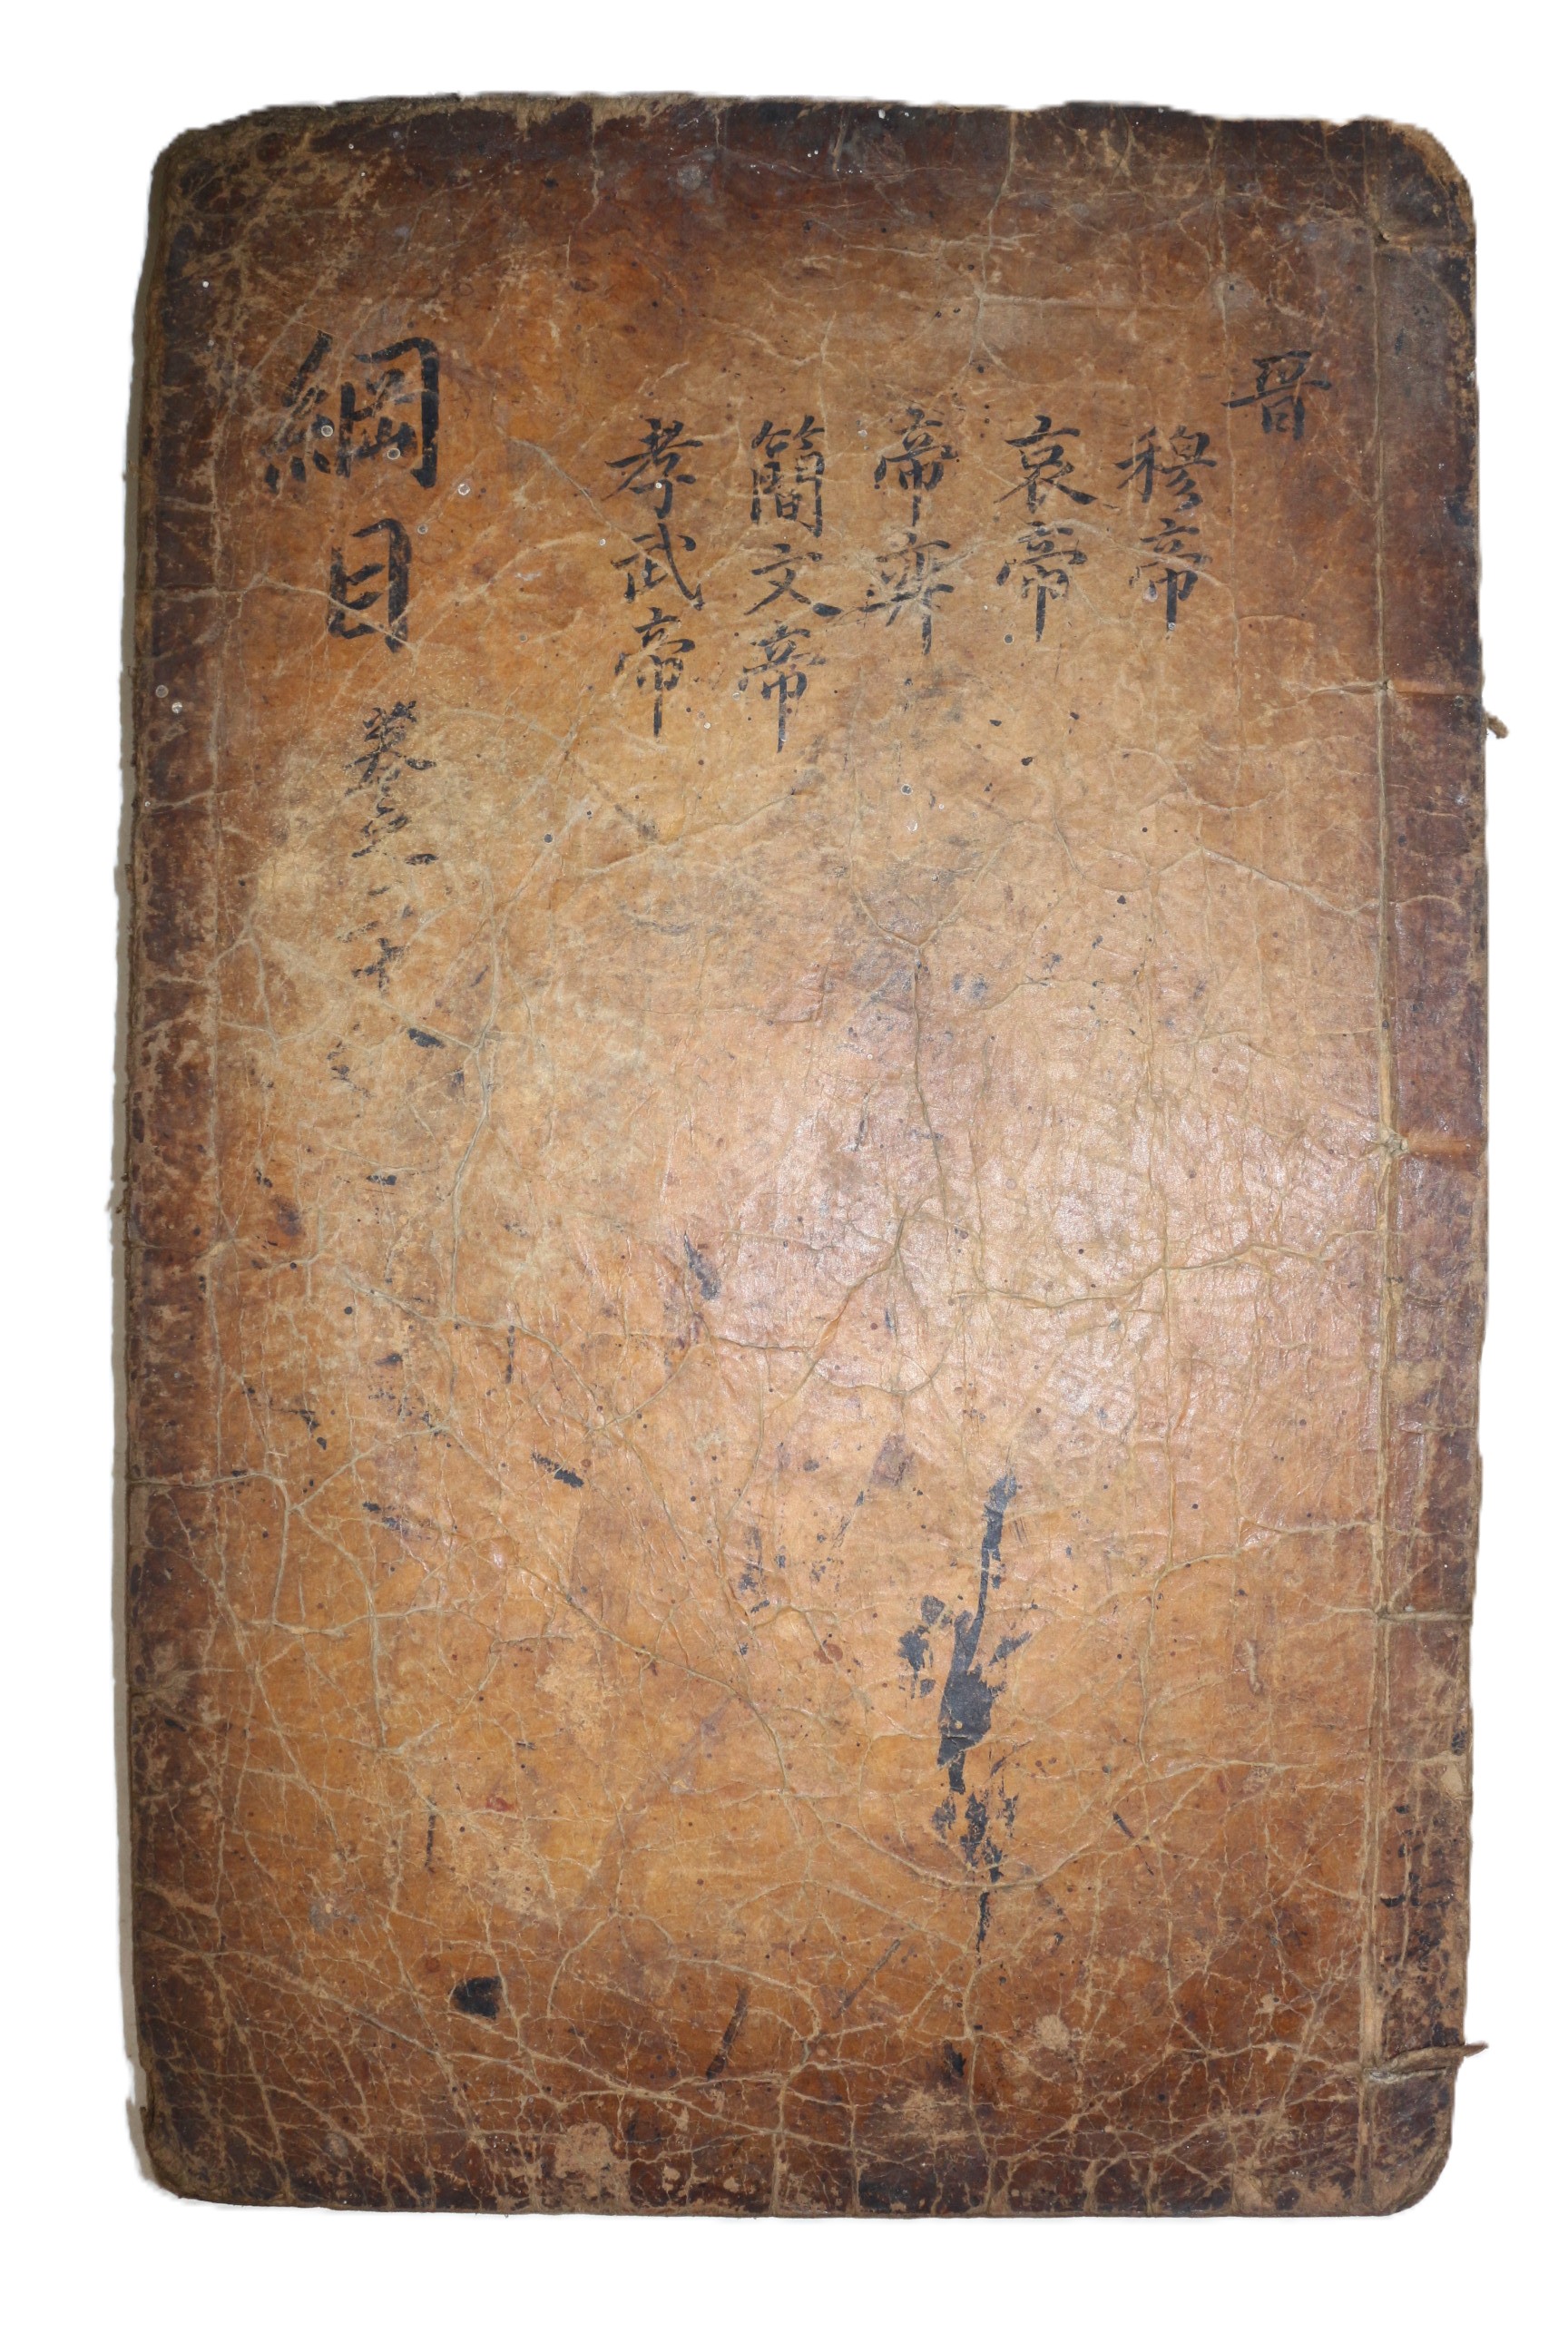 晋
穆帝
哀帝
帝弈
簡文帝
孝武帝
綱目 卷之二十